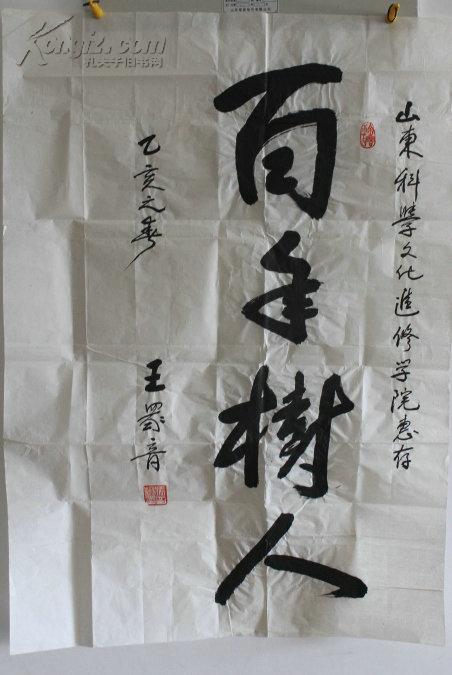 山東科學文化進修学院惠存
百年樹人
乙亥之春
王翏音
Kongfz.com
孔夫子旧书网